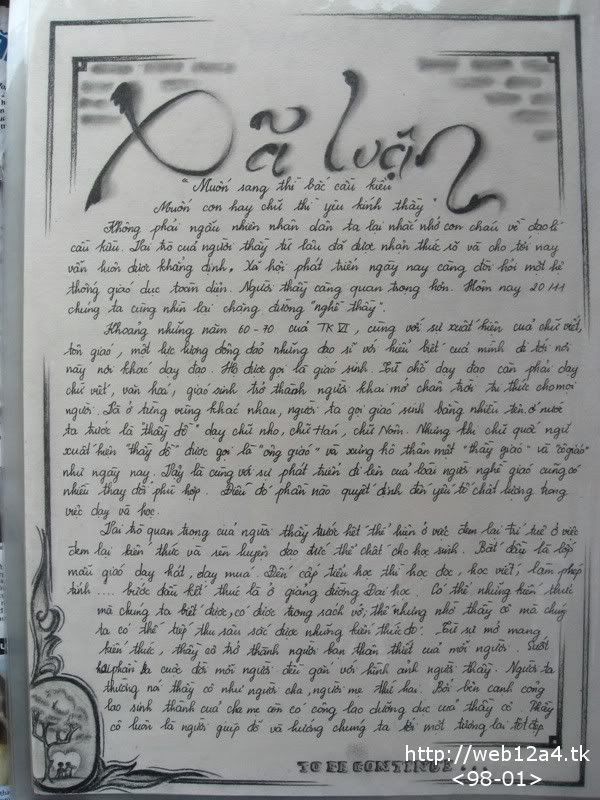 Xã luận
"Muốn sang thì bắc cầu kiều
Muốn con hay chữ thì yêu kính thầy"
Không phải ngẫu nhiên nhân dân ta lại nhắc nhở con cháu về đạo lí
câu. Vai trò của người thầy từ lâu đã được nhận thức rõ và cho tới nay
vẫn luôn được khẳng định. Xã hội phát triển ngày nay càng đòi hỏi một hệ
thống giáo dục toàn diện. Người thầy càng quan trọng hơn. Hôm nay 20/11
chúng ta cùng nhìn lại chặng đường "nghề thầy".
Khoảng những năm 60-70 của TK VI, cùng với sự xuất hiện của chữ viết,
tôn giáo, một lực lượng đông đảo những đạo sĩ với hiểu biết của mình đi tới nơi
này nơi khác dạy đạo. Họ được gọi là giáo sinh. Từ chỗ dạy đạo cần phải dạy
chữ viết, văn hoá, giáo sinh trở thành người khai mở chân trời tri thức cho mọi
người. Và ở từng vùng khác nhau, người ta gọi giáo sinh bằng nhiều tên. Ở nước
ta trước là "thầy đồ" dạy chữ nho, chữ Hán, chữ Nôm. Nhưng khi chữ quốc ngữ
xuất hiện "thầy đồ" được gọi là "ông giáo" và xưng hô thân mật "thầy giáo" và "cô giáo"
như ngày nay. Đây là cùng với sự phát triển đi lên của loài người nghề giáo cũng có
nhiều thay đổi phù hợp. Điều đó phần nào quyết định đến yếu tố chất lượng trong
việc dạy và học.
Vai trò quan trọng của người thầy trước hết thể hiện ở việc đem lại trí tuệ ở việc
đem lại kiến thức và rèn luyện đạo đức thể chất cho học sinh. Bắt đầu là lớp
mẫu giáo dạy hát, dạy múa. Đến cấp tiểu học thì học đọc, học viết, làm phép
tính .... bước đầu là ở giảng đường Đại học. Có thể những kiến thức
mà chúng ta biết được, có được trong sách vở, thế nhưng nhờ thầy cô mà chúng
ta có thể tiếp thu sâu sắc được những kiến thức đó. Từ sự mở mang
kiến thức, thầy cô trở thành người bạn thân thiết của mỗi người. Suốt
phần cuộc đời mỗi người đều gắn với hình ảnh người thầy. Người ta
thường nói thầy cô như người cha, người mẹ thứ hai. Bởi bên cạnh công
lao sinh thành của cha mẹ còn có công lao dưỡng dục của thầy cô. Thầy
cô luôn là người giúp đỡ và hướng chúng ta tới một tương lai tốt đẹp.
TO BE CONTINUE...
http://web12a4.tk
<98-01>